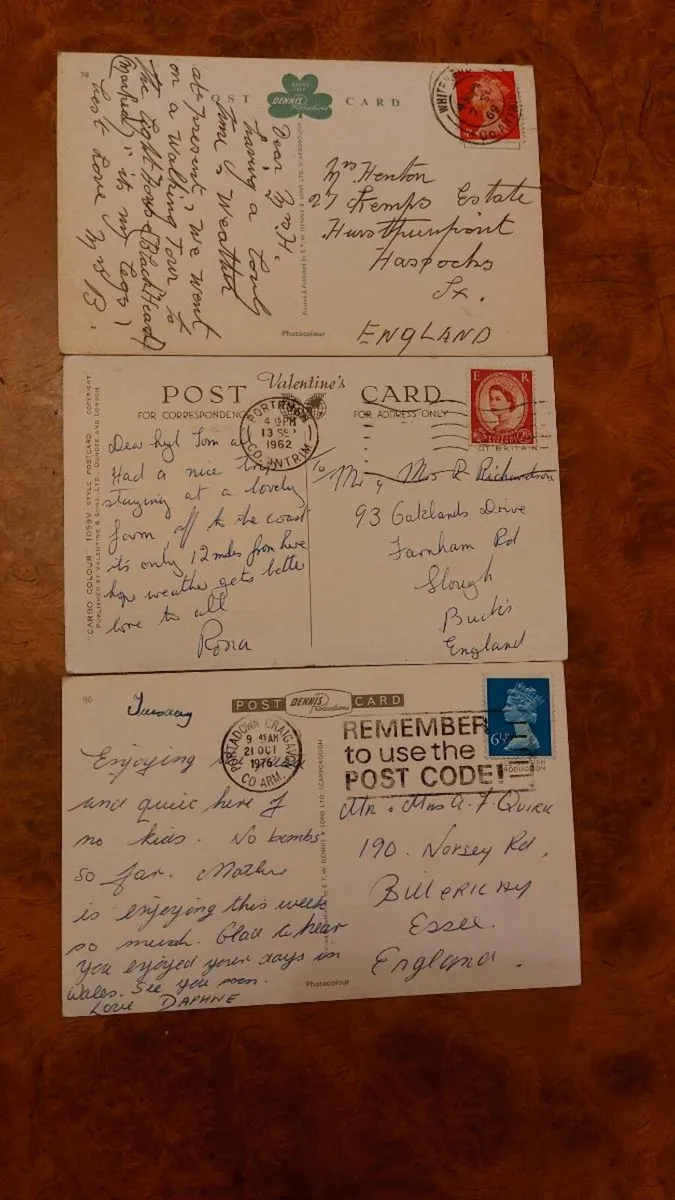 78
POST CARD
DENNIS
Productions
Dear Mrs H.
having a lovly
time, weather
at present, we went
on a walking tour to
the Light House (Black Head)
(marked) it's my legs)
best Love Mrs B.
Printed & Published by E.T.W. DENNIS & SONS LTD. SCARBOROUGH
Photocolour
WHITEHEAD
69
CO. ANTRIM
Mrs Henton
27 Kemps Estate
Hurstpierpoint
Hassocks
Sx.
ENGLAND
POST Valentine's CARD
FOR CORRESPONDENCE
FOR ADDRESS ONLY
"CARBO COLOUR" 1059V STYLE POSTCARD COPYRIGHT
PUBLISHED BY VALENTINE & SONS LTD. DUNDEE AND LONDON
PORTRUSH
4 15 PM
13 SEP
1962
CO. ANTRIM
E R
Dear Tom
Had a nice trip
staying at a lovely
farm off to the coast
its only 12 miles from here
hope weather gets better
love to all
Rona
To Mr & Mrs R Richardson
93 Oaklands Drive
Farnham Rd
Slough
Bucks
England
90
POST DENNIS Productions CARD
Tuesday
PORTADOWN CRAIGAVON
9 45 AM
21 OCT
1976
CO ARM.
REMEMBER
to use the
POST CODE!
6½P
Enjoying
and quiet here of
no kids. No bombs
so far. Mother
is enjoying this week
so much. Glad to hear
you enjoyed your days in
Wales. See you soon.
Love DAPHNE
E.T.W. DENNIS & SONS LTD. SCARBOROUGH
Photocolour
Mr & Mrs A. F. QUIRK
190. Norsey Rd,
BILLERICAY
Essex.
England.